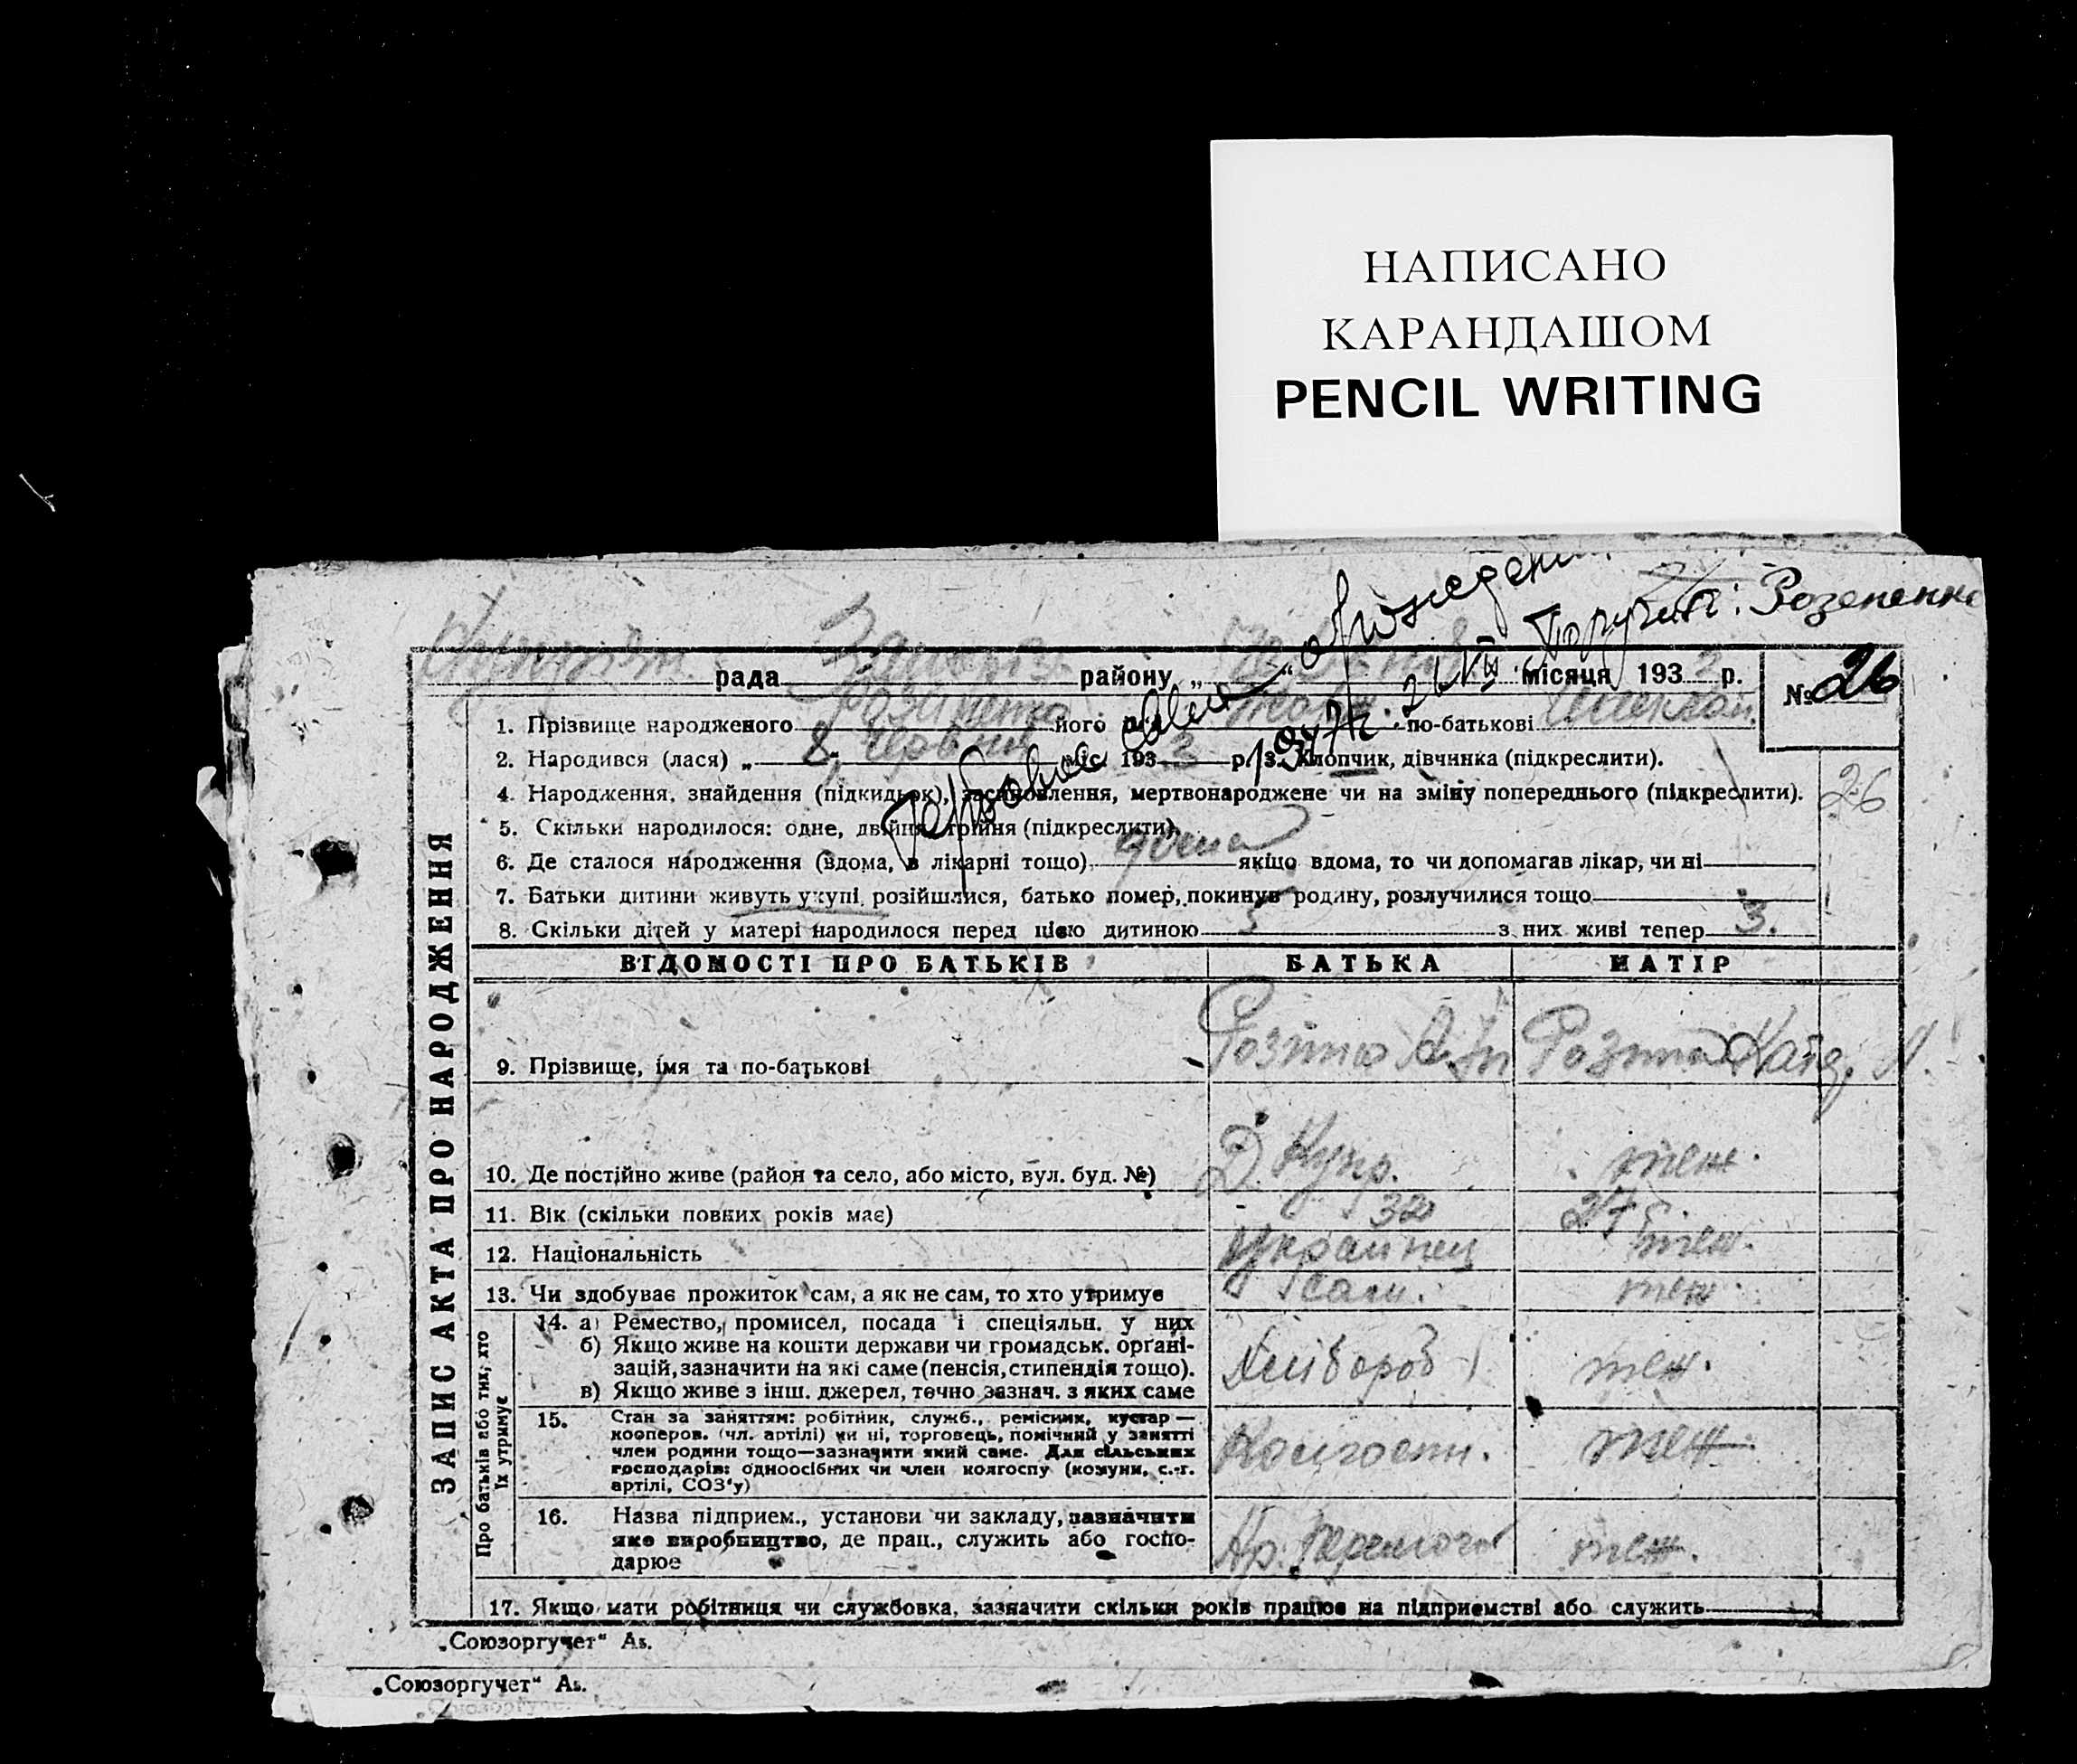 НАПИСАНО
КАРАНДАШОМ
PENCIL WRITING
рада району „ “ місяця 193 2 р. № 26
1. Прізвище народженого його по-батькові
2. Народився (лася) „ 8 “ червня міс. 193 2 р. 3. Хлопчик, дівчинка (підкреслити).
4. Народження, знайдення (підкидьок), засиновлення, мертвонароджене чи на зміну попереднього (підкреслити). 26
5. Скільки народилося: одне, двійня, трійня (підкреслити)
6. Де сталося народження (вдома, в лікарні тощо) якщо вдома, то чи допомагав лікар, чи ні
7. Батьки дитини живуть укупі, розійшлися, батько помер, покинув родину, розлучилися тощо
8. Скільки дітей у матері народилося перед цією дитиною 5 з них живі тепер 3.
ЗАПИС АКТА ПРО НАРОДЖЕННЯ
ВІДОМОСТІ ПРО БАТЬКІВ БАТЬКА МАТІР
9. Прізвище, імя та по-батькові
10. Де постійно живе (район та село, або місто, вул. буд. №) Д. Купр. теж.
11. Вік (скільки повних років має) 32 27
12. Національність Украинец теж.
13. Чи здобуває прожиток сам, а як не сам, то хто утримує сам. теж.
Про батьків або тих, хто їх утримує
14. а) Ремество, промисел, посада і спеціяльн. у них
б) Якщо живе на кошти держави чи громадськ. органі-
зацій, зазначити на які саме (пенсія, стипендія тощо).
в) Якщо живе з інш. джерел, точно зазнач. з яких саме
Хлібороб теж.
15. Стан за заняттям: робітник, служб., ремісник, кустар —
кооперов. (чл. артілі) чи ні, торговець, помічний у занятті
член родини тощо—зазначити який саме. Для сільських
господарів: одноосібних чи член колгоспу (комуни, с.-г.
артілі, СОЗ'у)
Колгоспн. теж.
16. Назва підприєм., установи чи закладу, зазначити
яке виробництво, де прац., служить або госпо-
дарює
теж.
17. Якщо мати робітниця чи службовка, зазначити скільки років працює на підприємстві або служить
„Союзоргучет“ А5.
„Союзоргучет“ А5.